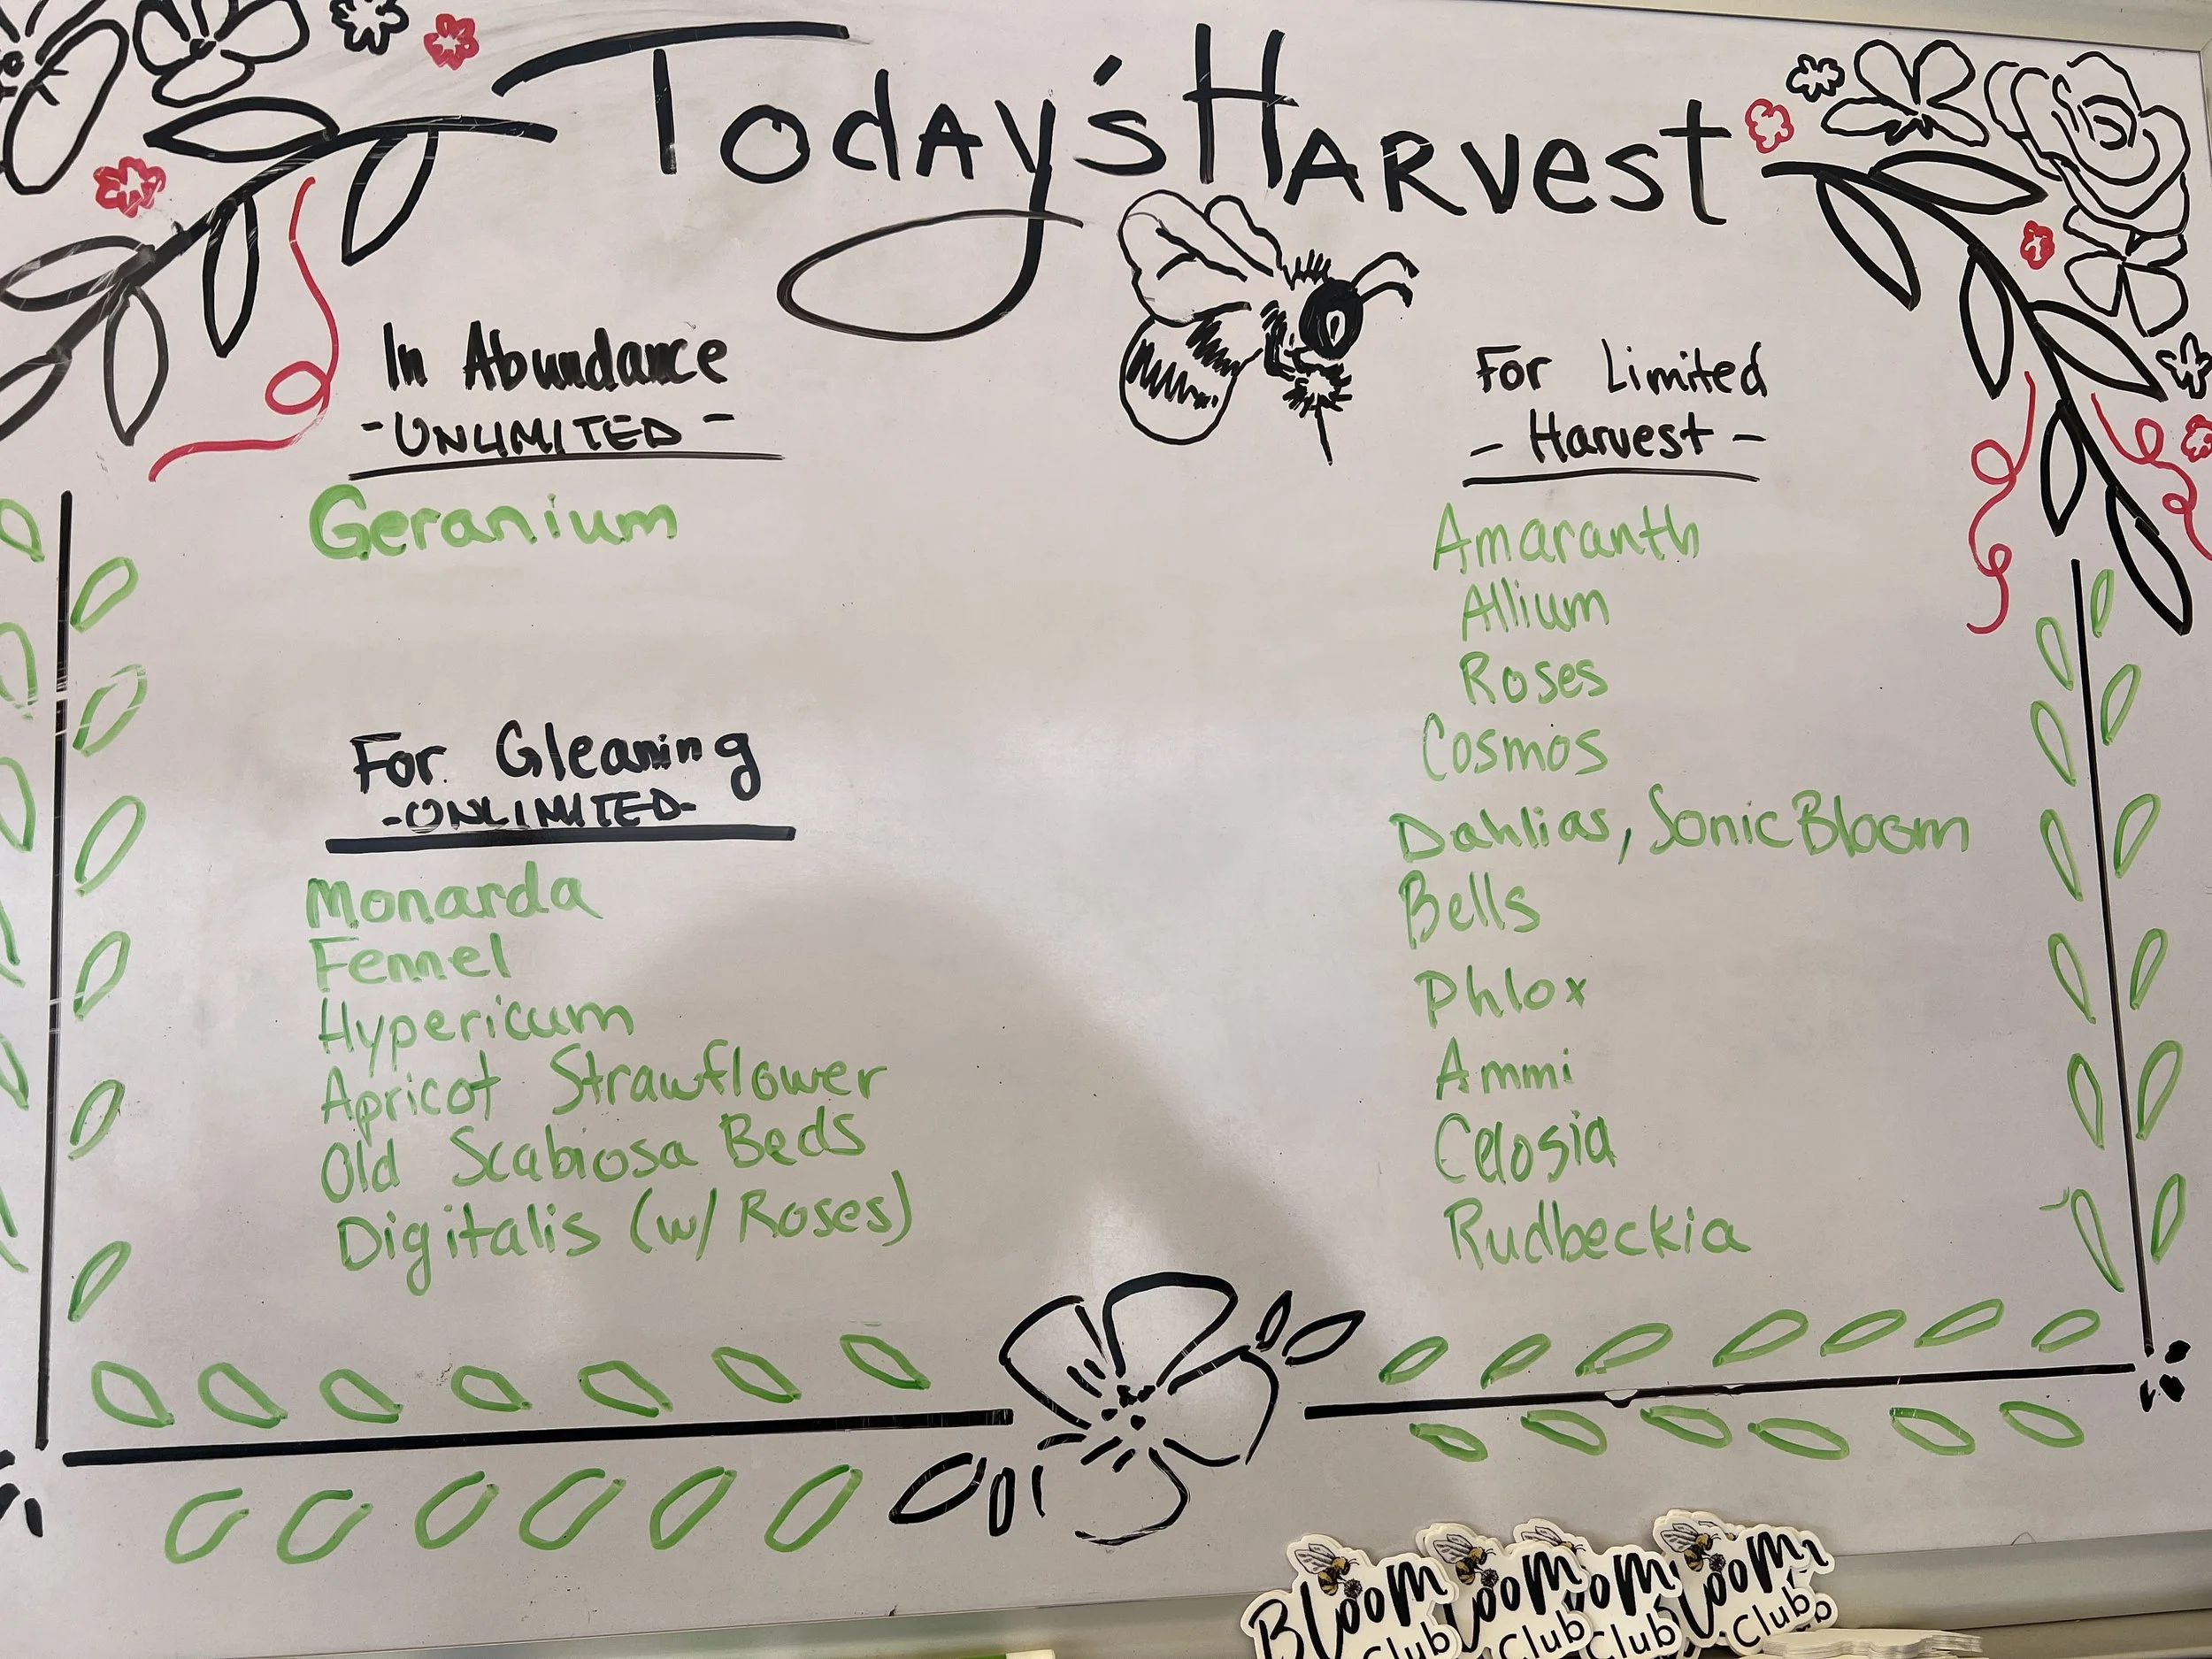 Today's Harvest
In Abundance
- UNLIMITED -
Geranium
For Gleaning
-UNLIMITED-
Monarda
Fennel
Hypericum
Apricot Strawflower
Old Scabiosa Beds
Digitalis (w/ Roses)
For Limited
- Harvest -
Amaranth
Allium
Roses
Cosmos
Dahlias, Sonic Bloom
Bells
Phlox
Ammi
Celosia
Rudbeckia
Bloom
Club
oom
Club
om
Club
loom
Club